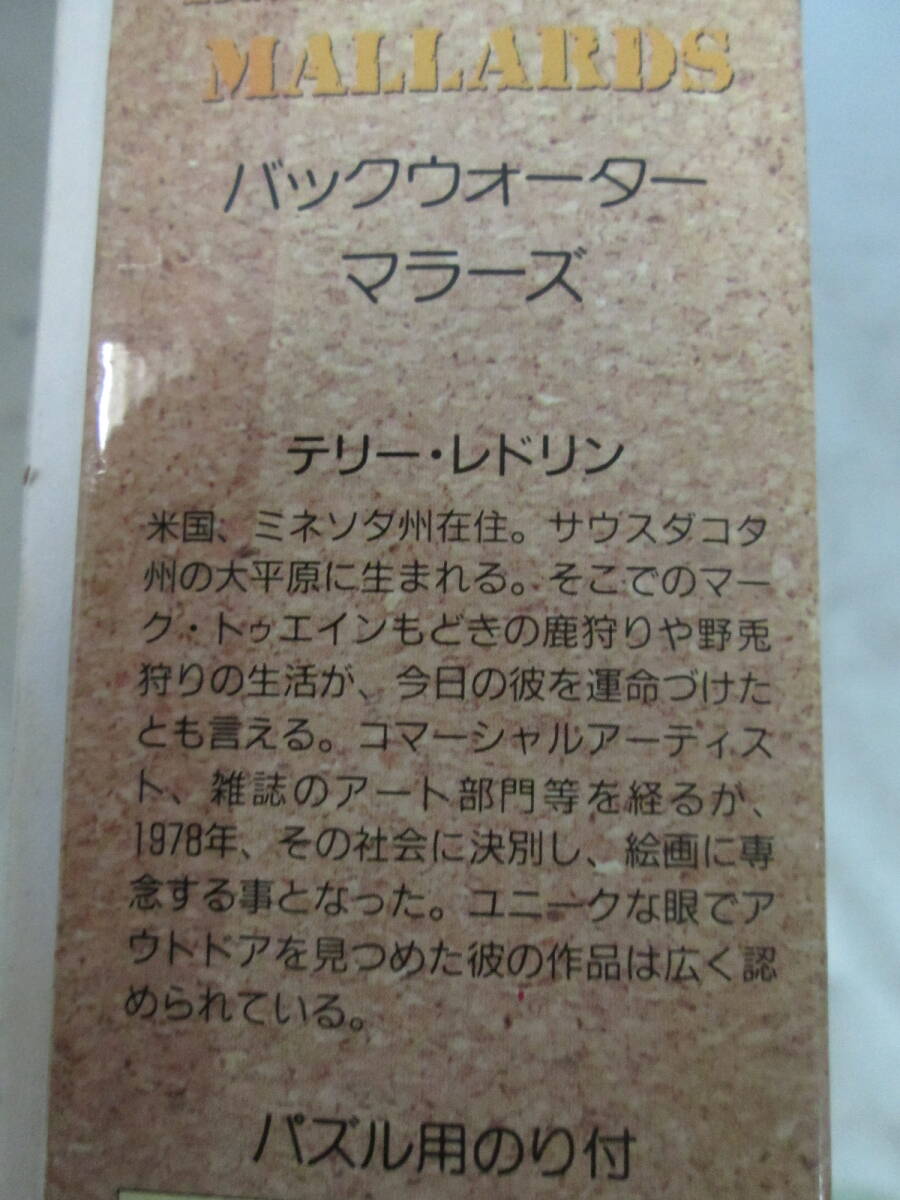 MALLARDS
バックウォーター
マラーズ
テリー・レドリン
米国、ミネソタ州在住。サウスダコタ
州の大平原に生まれる。そこでのマー
ク・トゥエインもどきの鹿狩りや野兎
狩りの生活が、今日の彼を運命づけた
とも言える。コマーシャルアーティス
ト、雑誌のアート部門等を経るが、
1978年、その社会に決別し、絵画に専
念する事となった。ユニークな眼でア
ウトドアを見つめた彼の作品は広く認
められている。
パズル用のり付